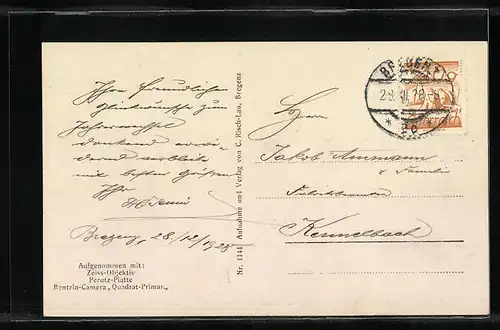 Ihre freundlichen
Glückwünsche zum
Jahreswechsel
dankend erwi-
dernd verbleibe
mit besten Grüßen
Ihr
Bregenz, 28/12/1928
Aufgenommen mit:
Zeiss-Objektiv
Perutz-Platte
Bentzin-Camera „Quadrat-Primar„
Nr. 1144 Aufnahme und Verlag von C. Risch-Lau, Bregenz
BREGENZ
Herrn
Jakob Ammann
& Familie
Kennelbach